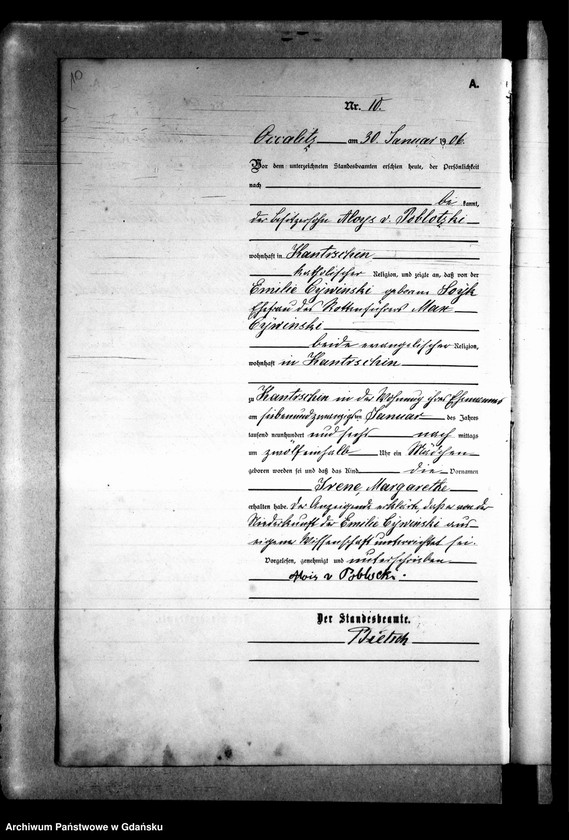 10
A.
Nr. 10.
Occalitz am 30. Januar 1906.
Vor dem unterzeichneten Standesbeamten erschien heute, der Persönlichkeit
nach
be kannt,
der Besitzersohn Aloys v. Poblotzki
wohnhaft in Kantrschin
katholischer Religion, und zeigte an, daß von der
Emilie Cywinski geborene
Ehefrau des Rottenführers Max
Cywinski
beide evangelischer Religion,
wohnhaft in Kantrschin
zu Kantrschin in der Wohnung ihres Ehemannes
am siebenundzwanzigsten Januar des Jahres
tausend neunhundert und sechs nach mittags
um zwölfeinhalb Uhr ein Mädchen
geboren worden sei und daß das Kind die Vornamen
Irene, Margarethe
erhalten habe. Der Anzeigende erklärte, daß er von der
Niederkunft der Emilie Cywinski aus
eigener Wissenschaft unterrichtet sei.
Vorgelesen, genehmigt und unterschrieben
v
Der Standesbeamte.
Archiwum Państwowe w Gdańsku